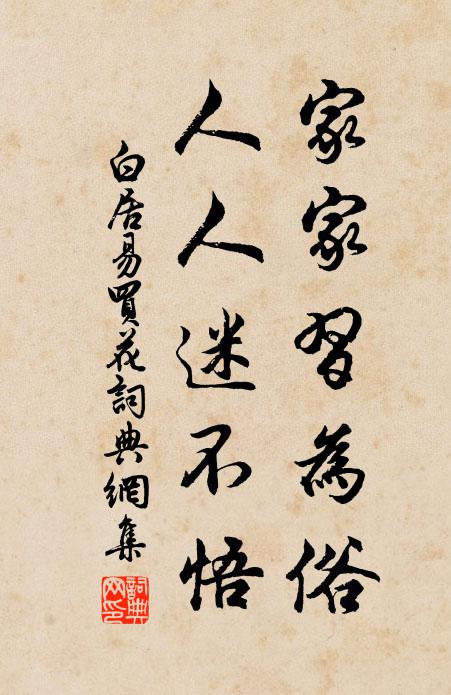 家家習為俗
人人迷不悟
白居易買花詞典網集
詞典
网印